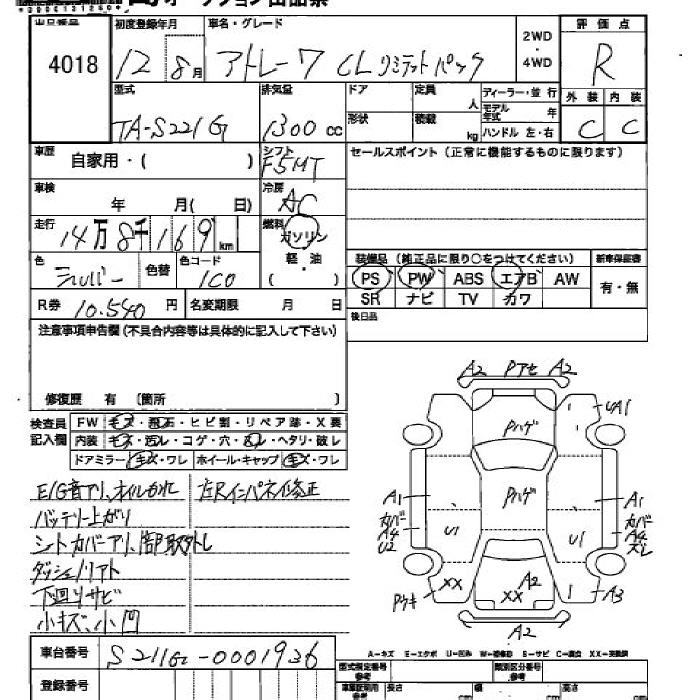 出品番号 初度登録年月 車名・グレード 2WD・4WD 評価点
4018 12年 8月 アトレーワ CLリミテットパック R
型式 排気量 ドア 定員 人 ディーラー・並行 外装 内装
TA-S221G 1300cc 形状 積載 kg モデル年式 年 ハンドル 左・右 C C
車歴 自家用・( ) シフト F5MT セールスポイント(正常に機能するものに限ります)
車検 年 月( 日) 冷房 AC
走行 14万8千169km 燃料 ガソリン
軽・油 ( ) 装備品(純正品に限り○をつけてください) 新車保証書
色 シルバー 色替 色コード 1C0 PS PW ABS エアB AW 有・無
R券 10.540円 名変期限 月 日 SR ナビ TV カワ
後日品
注意事項申告欄(不具合内容等は具体的に記入して下さい)
修復歴 有 (箇所 )
検査員記入欄 FW キズ・飛石・ヒビ割・リペア跡・X要
内装 キズ・汚レ・コゲ・穴・スレ・ヘタリ・破レ
ドアミラー キズ・ワレ ホイール・キャップ キズ・ワレ
E/G音アリ、オイルもれ 左Rインパネ修正
バッテリー上がり
シートカバーアリ、内部取外し
ダッシュノリアト
下回りサビ
小キズ、小凹
A2 Pアセ A2
UA1
Pハゲ
Pハゲ
A1 カバー A4 U2
U1
U1
A1 カバー A4 ズレ
XX A2 XX
Pケキ
A3
A2
A-キズ E-エクボ U-凹み W-補修跡 S-サビ C-腐食 XX-交換済
車台番号 S211G-0001936
登録番号
型式指定番号 類別区分番号
長さ cm 幅 cm 高さ cm